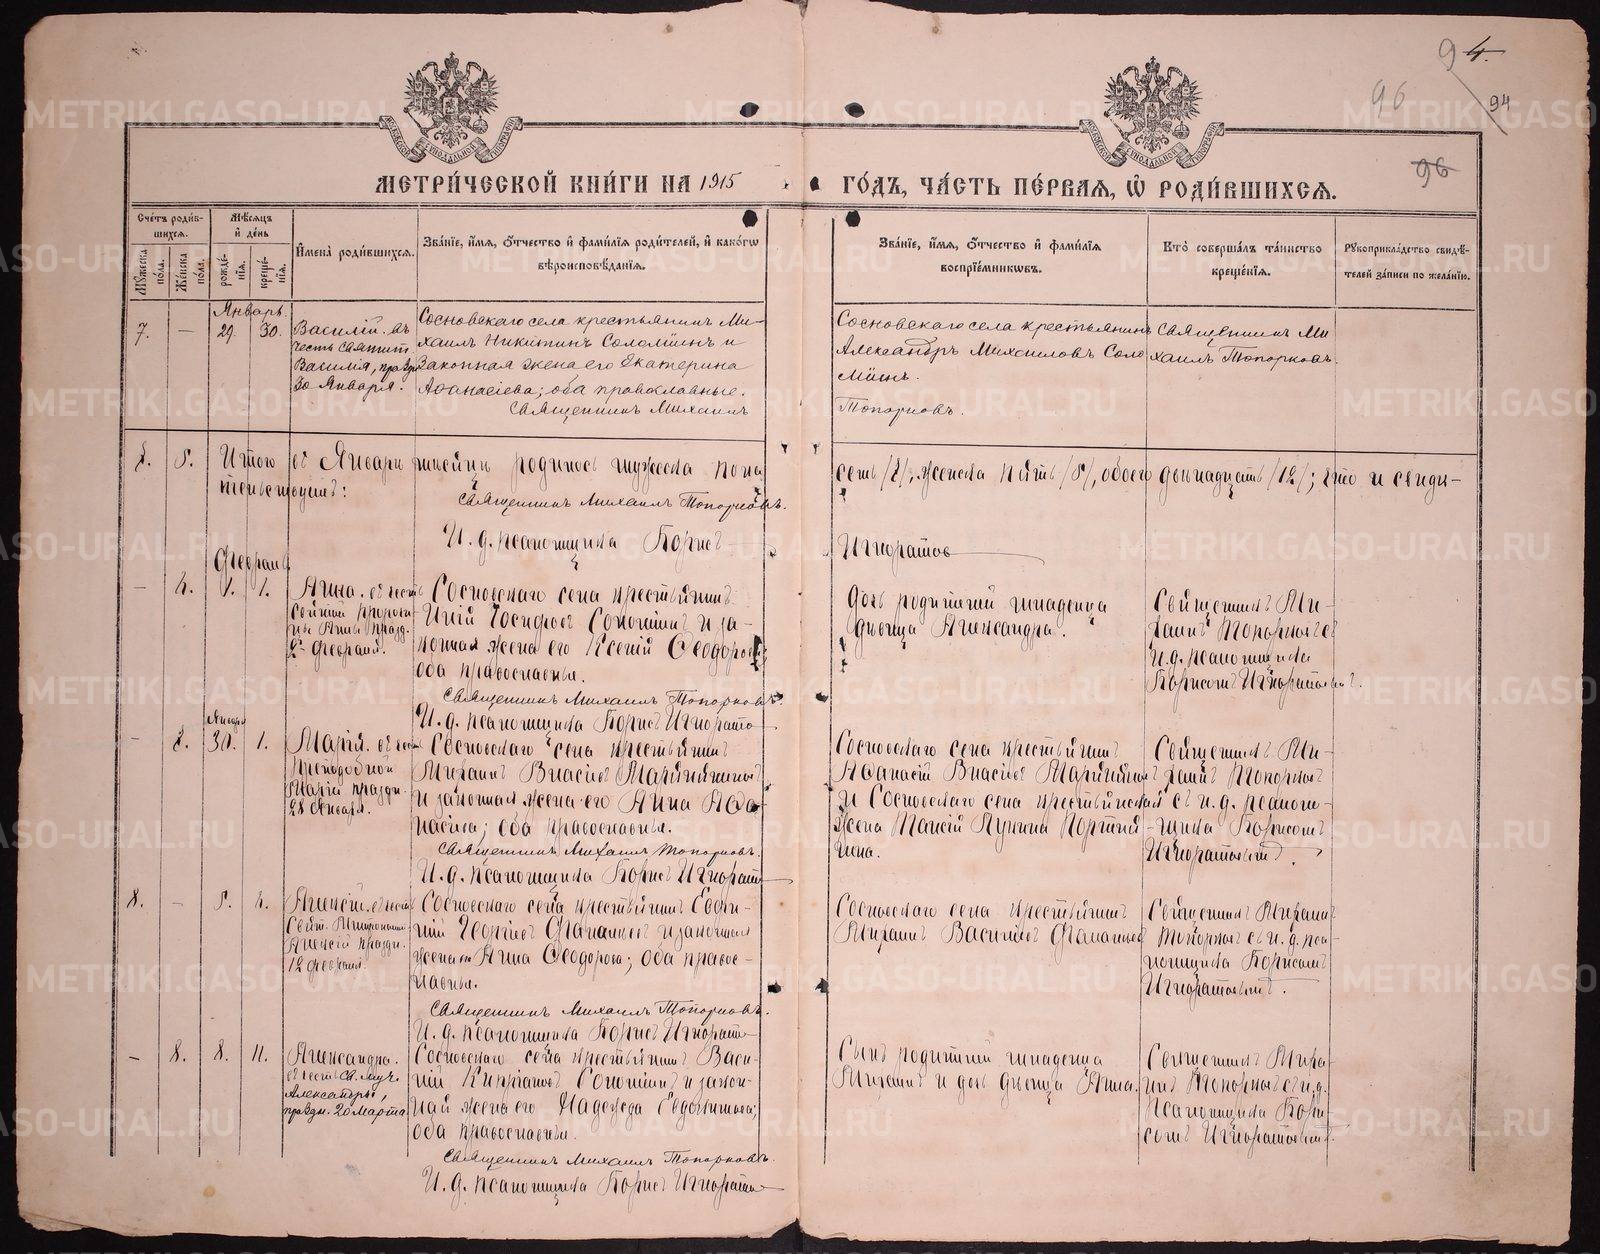 94.
96
94
96
МЕТРИ́ЧЕСКОЙ КНИ́ГИ НА 1915 ГО́ДЪ, ЧА́СТЬ ПЕ́РВАЯ, Ѡ РОДИ́ВШИХСЯ.
Сче́тъ роди́вшихся.
Му́жеска пола.
Же́нска пола.
Мѣ́сяцъ и́ де́нь
рожде́нїя.
креще́нїя.
И́мена̀ роди́вшихся.
Зва́нїе, и́мя, о́тчество и́ фами́лїя роди́телей, и́ како́гѡ
вѣроисповѣ́данїя.
Зва́нїе, и́мя, о́тчество и́ фами́лїя
воспрїе́мникѡвъ.
Кто̀ соверша́лъ та́инство
креще́нїя.
Рукоприкла́дство свидѣ́-
телей за́писи по жела́нїю.
Январь
7. — 29. 30.
Василій. въ
честь Святит.
Василія, праздн.
30 Января.
Сосновскаго села крестьянинъ Ми-
хаилъ Никитинъ Соломеинъ и
Законная жена его Екатерина
Аѳанасіева; оба православные.
Священникъ Михаилъ
Сосновскаго села крестьянинъ
Александръ Михаиловъ Соло
меинъ.
Топорковъ.
Священникъ Ми
хаилъ Топорковъ.
7. 5. Итого въ Январѣ мѣсяцѣ родилось мужеска пола семь /7/, женска пять /5/, обоего двѣнадцать /12/; что и свиди-
тельствуемъ:
Священникъ Михаилъ Топорковъ.
И. д. псаломщика Борисъ Игноратовъ
Февраль
— 6. 1. 1.
Анна. въ честь
Святыя пророчи-
цы Анны праздн.
3 Февраля.
Сосновскаго села крестьянинъ
Іосифовъ Соломеинъ и за-
конная жена его Ксенія Ѳеодорова;
оба православные.
Священникъ Михаилъ Топорковъ.
И. д. псаломщика Борисъ Игноратовъ
Дочь родителей младенца
дѣвица Александра.
Священникъ Ми-
хаилъ Топорковъ съ
и. д. псаломщика
Борисомъ Игноратовымъ.
Январь
— 7. 30. 1.
Марія. въ честь
Преподобной
Маріи праздн.
28 Января.
Сосновскаго села крестьянинъ
Михаилъ Власіевъ
и законная жена его Анна Аѳа-
насіева; оба православные.
Священникъ Михаилъ Топорковъ.
И. д. псаломщика Борисъ Игноратовъ
Сосновскаго села крестьянинъ
Аѳанасій Власіевъ
и Сосновскаго села крестьянская
жена Таисія Лукина
Священникъ Ми-
хаилъ Топорковъ
съ и. д. псалом-
щика Борисомъ
Игноратовымъ.
8. — 5. 6.
Алексій. въ честь
Свят. Митрополит.
Алексія праздн.
12 Февраля.
Сосновскаго села крестьянинъ Евфи-
мій Георгіевъ и законная
жена его Анна Ѳеодорова; оба право-
славные.
Священникъ Михаилъ Топорковъ.
И. д. псаломщика Борисъ Игноратовъ
Сосновскаго села крестьянинъ
Михаилъ Василіевъ
Священникъ Михаилъ
Топорковъ съ и. д. пса-
ломщика Борисомъ
Игноратовымъ.
— 8. 8. 11.
Александра.
въ честь Св. муч.
Александры,
праздн. 20 Марта.
Сосновскаго села крестьянинъ Васи-
лій Кипріановъ Соломеинъ и закон-
ная жена его Надежда Евдокимова;
оба православные.
Священникъ Михаилъ Топорковъ.
И. д. псаломщика Борисъ Игноратовъ
Сынъ родителей младенца
Михаилъ и дочь дѣвица Анна.
Священникъ Миха-
илъ Топорковъ съ и. д.
псаломщика Бори-
сомъ Игноратовымъ.
METRIKI.GASO-URAL.RU